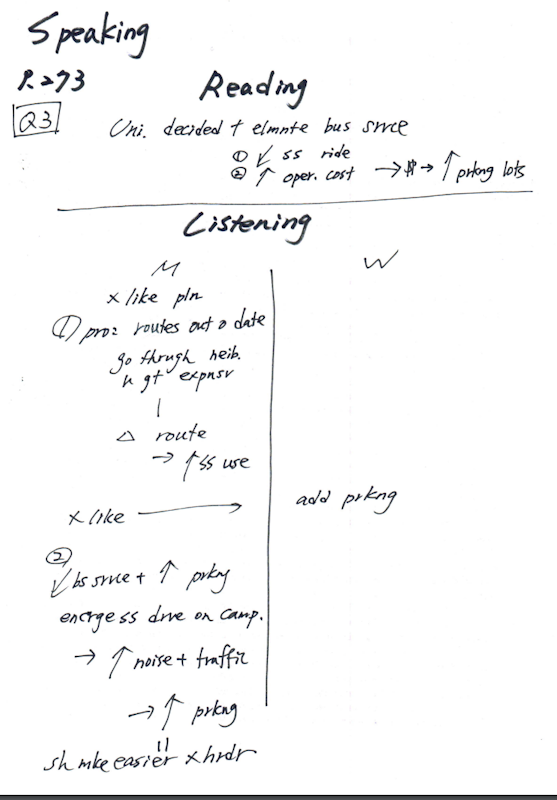 Speaking
P.273
Reading
Q3
Uni. decided t elmnte bus srvce
① ↓ ss ride
② ↑ oper. cost → $ → ↑ prkng lots
Listening
M
x like pln
① pro: routes out o date
go thrugh neib.
n gt expnsv
△ route
→ ↑ ss use
x like →
②
↓ bs srvce + ↑ prkng
encrge ss drve on camp.
→ ↑ noise + traffic
→ ↑ prkng
sh mke easier x hrdr
W
add prkng